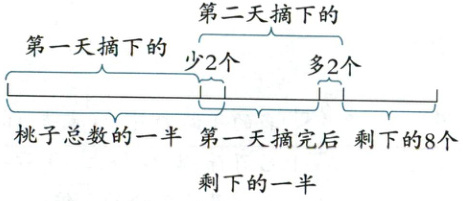 第二天摘下的
第一天摘下的
少2个
多2个
桃子总数的一半
第一天摘完后
剩下的8个
剩下的一半